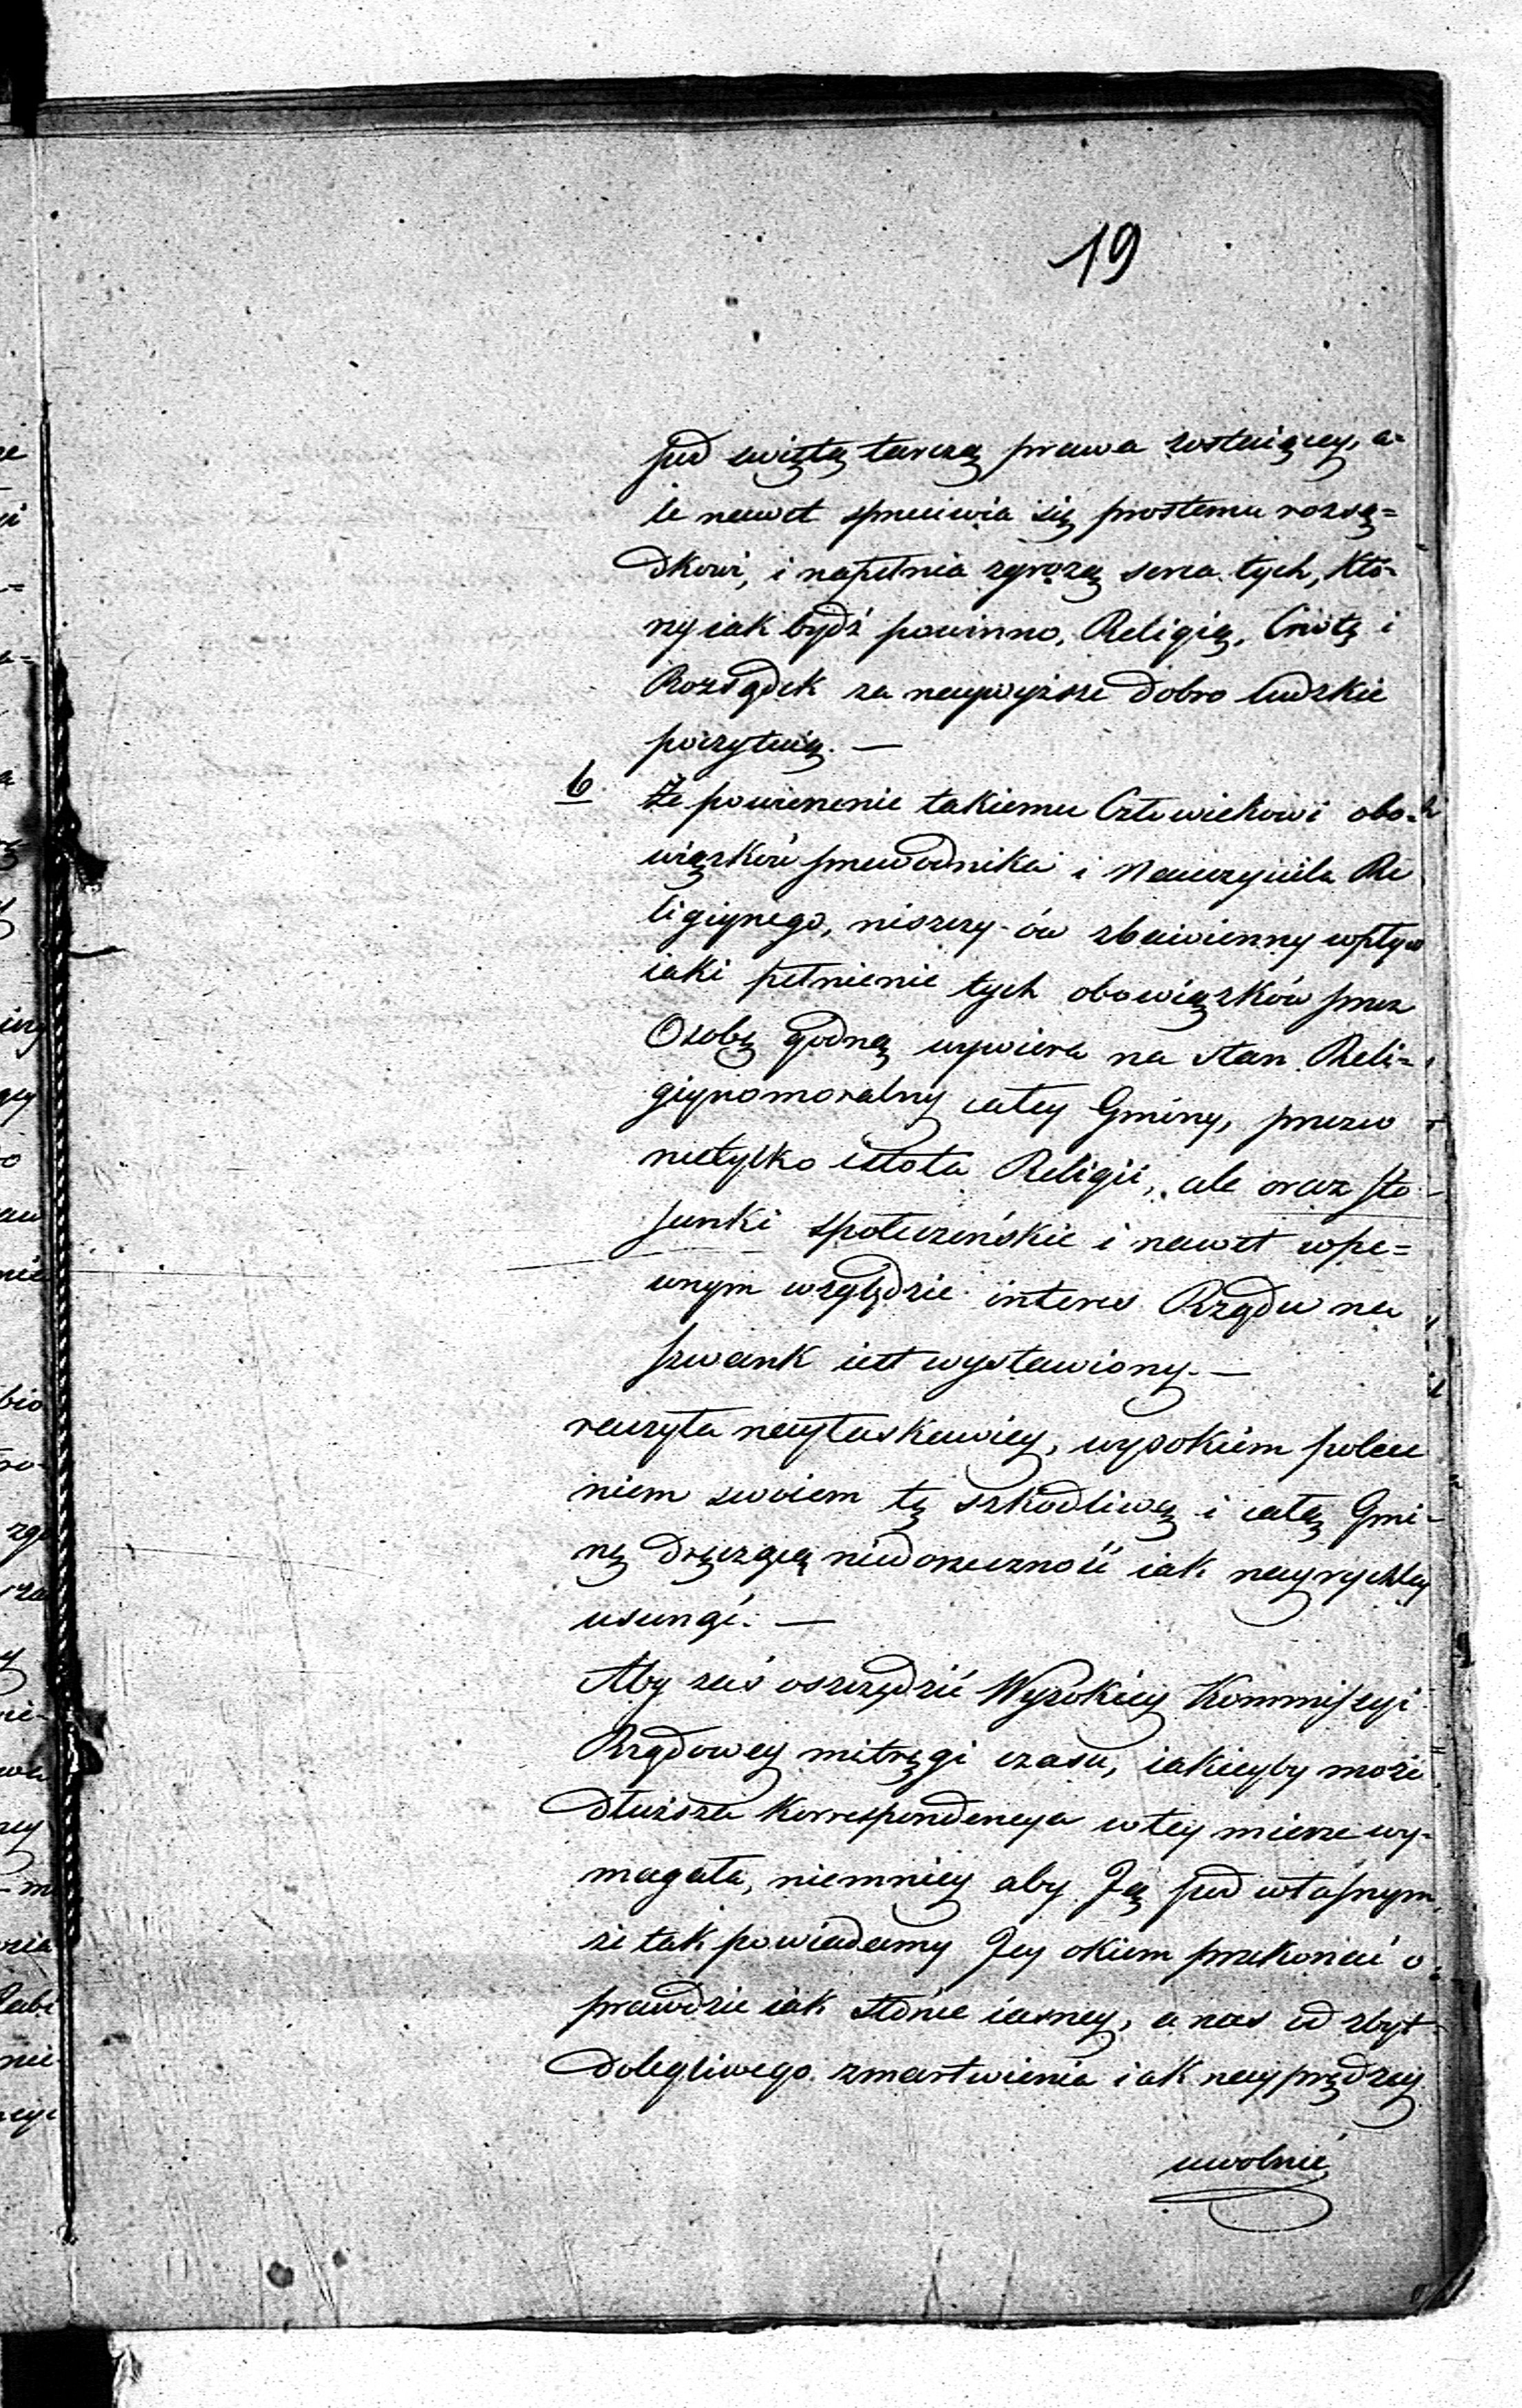 19
pod swiętą tarczą prawa zostaiącey, a=
le nawet sprzeciwia się prostemu rozsą=
dkowi, i napełnia zgrozą serca tych, któ=
rzy iak bydź powinno, Religią, Cnotę i
Rozsądek za naywyższe dobro ludzkie
poczytuią. —
6 Że powierzenie takiemu Człowiekowi obo=
wiązków przewodnika i Nauczyciela Re
ligiynego, niszczy ów zbawienny wpływ
iaki pełnienie tych obowiązków przez
Osobę godną wywiera na stan Reli=
giynomoralny całey Gminy, przezco
nietylko istota Religii, ale oraz sto
sunki społeczeńskie i nawet wpe=
wnym względzie interes Rządu na
szwank iest wystawiony. —
raczyła nayłaskawiey, wysokiem polece
niem swoiem tę szkodliwą i całą Gmi=
nę dręczącą niedorzeczność iak nayrychley
usunąć. —
Aby zaś oszczędzić Wysokiey Kommissyi
Rządowey mitręgi czasu, iakieyby może
dłuższa korrespondencya wtey mierze wy=
magała, niemniey aby Ją pod własnym
że tak powiadamy Jey okiem przekonać o
prawdzie iak słońce iasney, a nas od zbyt
dolegliwego zmartwienia iak nayprędzey
uwolnić